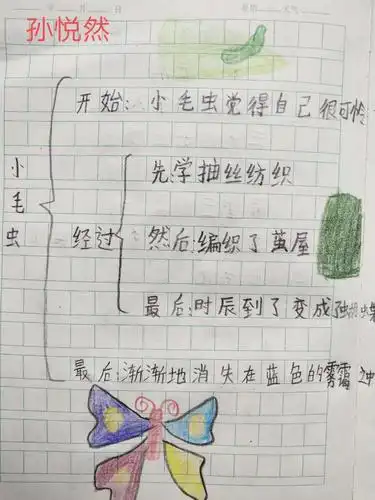 孙悦然
开始:小毛虫觉得自己很可怜
小毛虫
先学抽丝纺织
经过
然后:编织了茧屋
最后:时辰到了变成了
最后:渐渐地消失在蓝色的雾霭之中